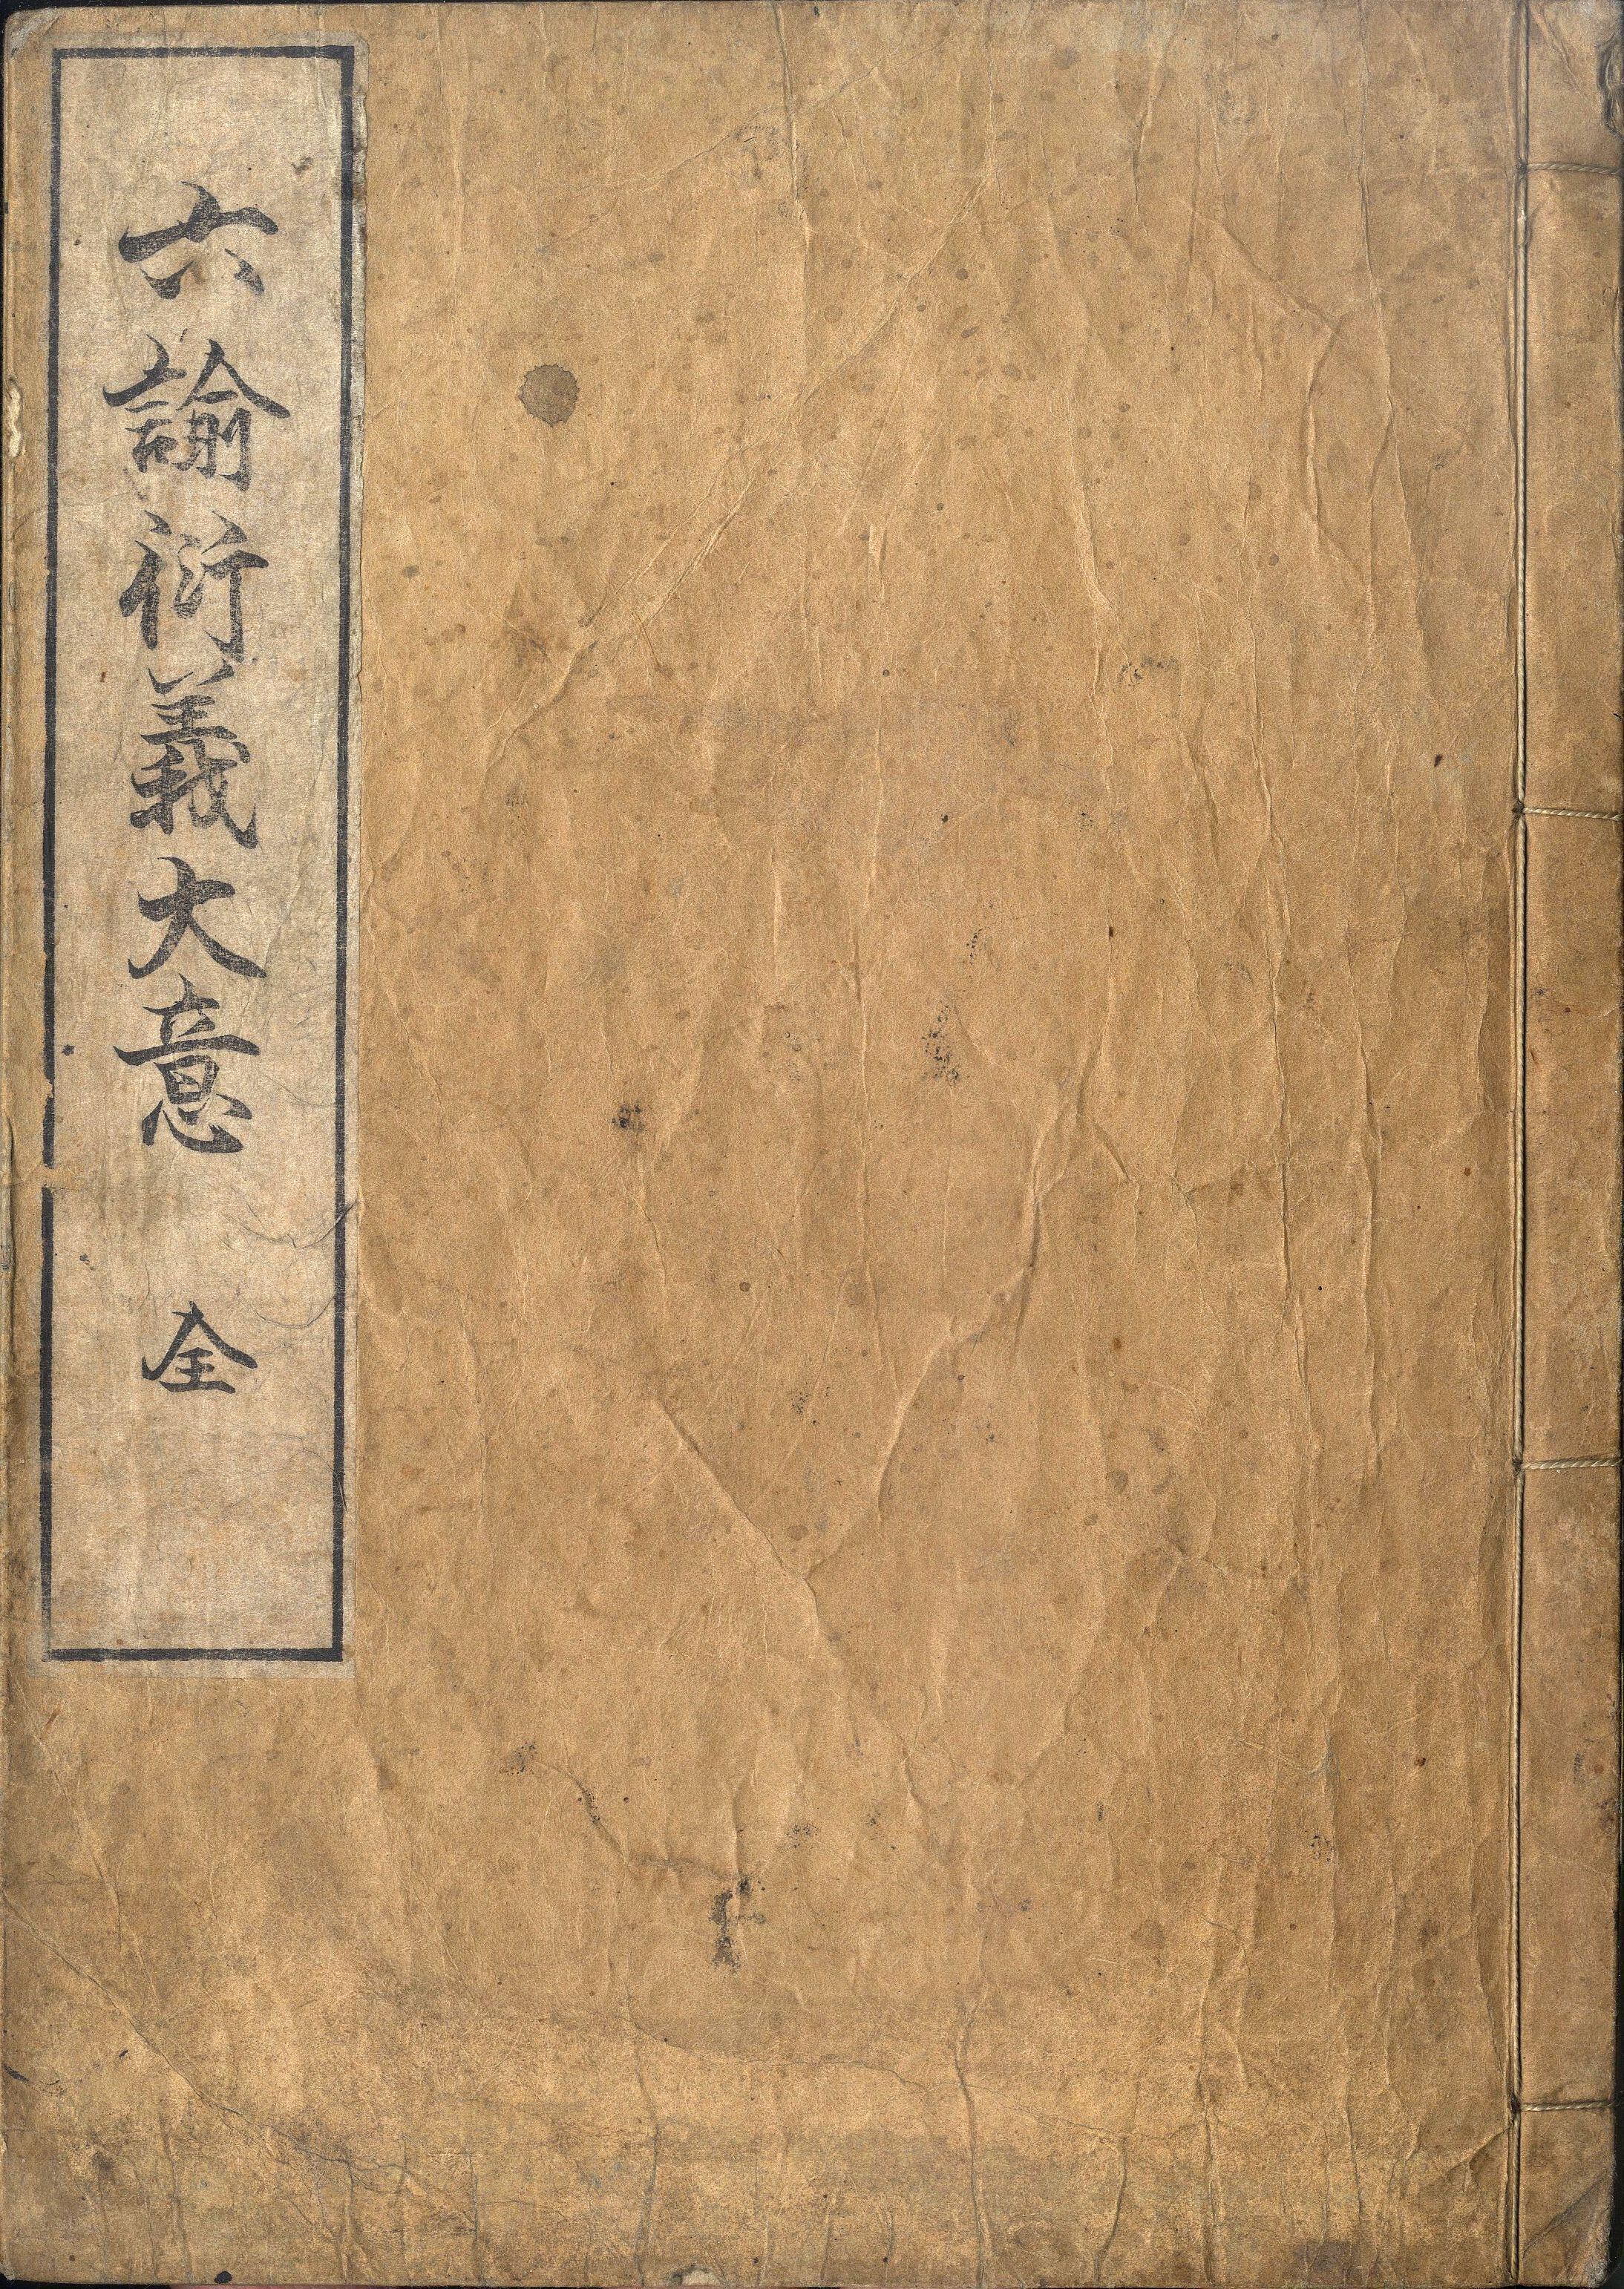 六諭衍義大意 全